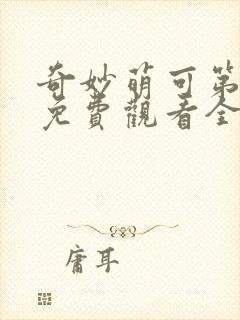 奇妙萌可第
免費觀看全
庸耳